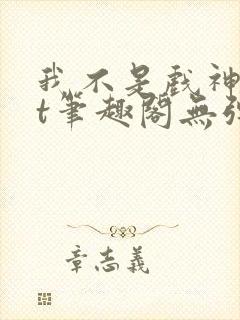 我不是戲神
t筆趣閣無弹
章志義